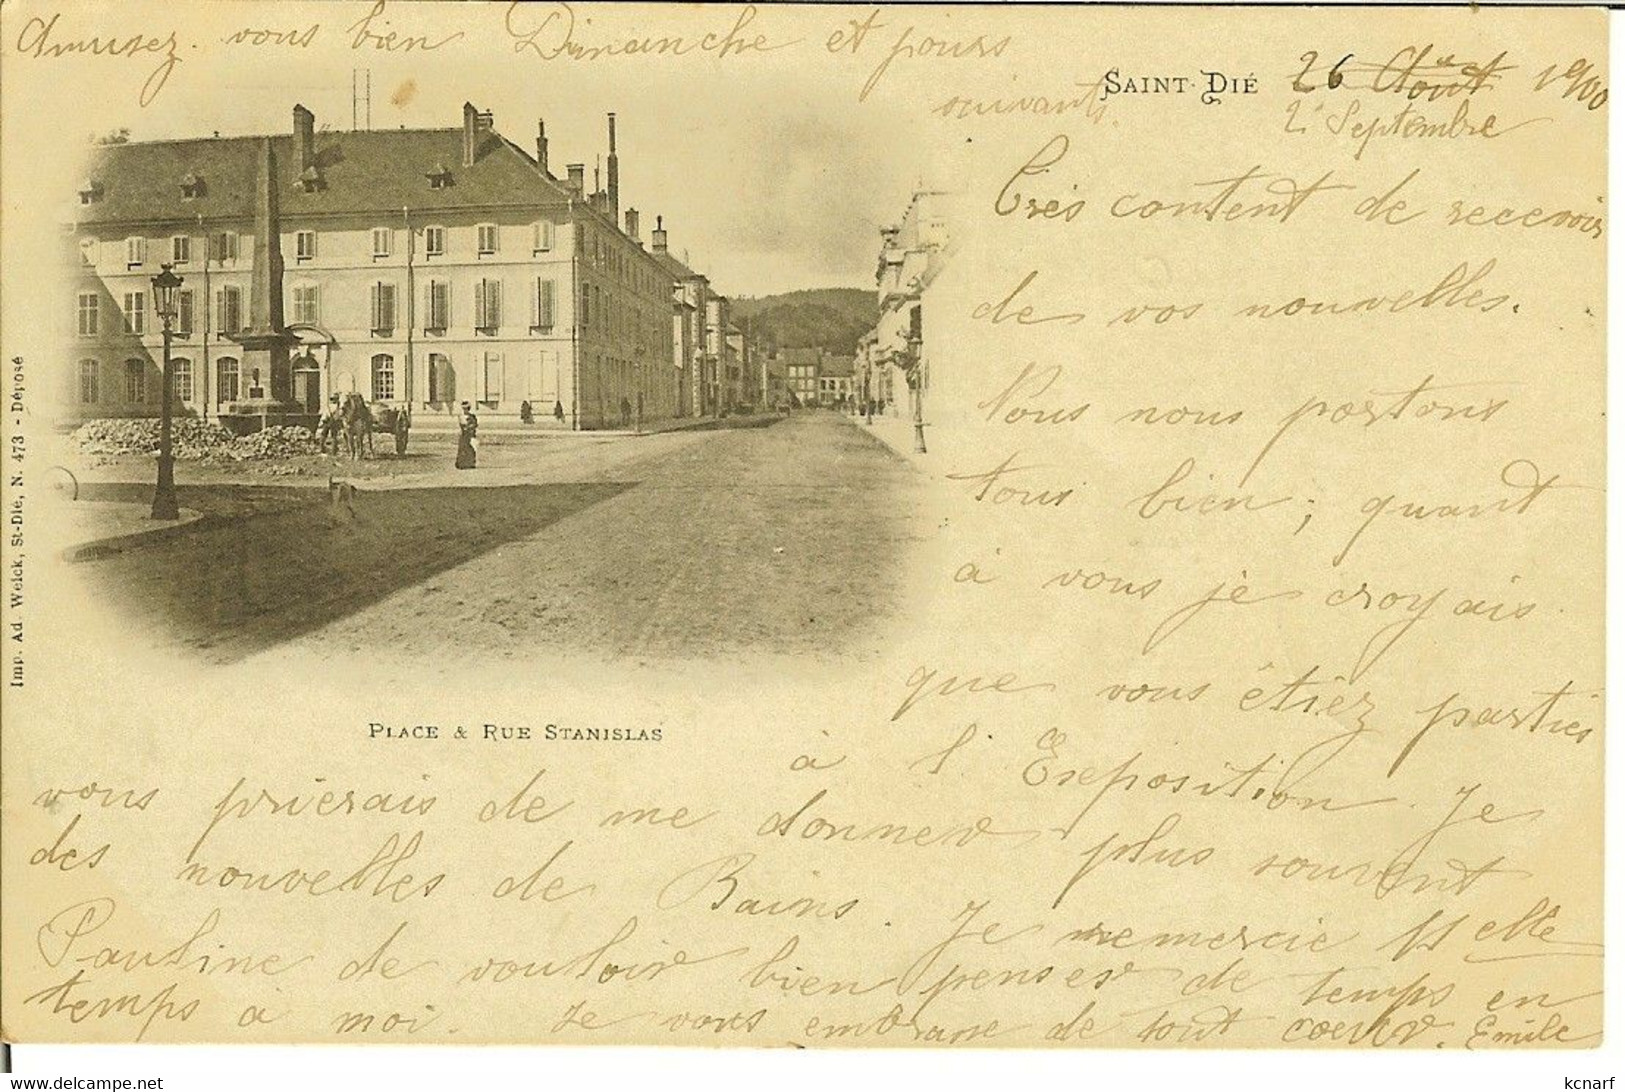 Amusez-vous bien Dimanche et jours
suivants.
SAINT-DIÉ 26 Août 1900
2 Septembre
Très content de recevoir
de vos nouvelles.
Nous nous portons
tous bien ; quant
à vous je croyais
que vous étiez parties
à l'Exposition. Je
vous prierais de me donner plus souvent
des nouvelles de Bains. Je remercie Melle
Pauline de vouloir bien penser de temps en
temps à moi. Je vous embrasse de tout coeur. Emile
PLACE & RUE STANISLAS
Imp. Ad. Weick, St-Dié, N. 473 - Déposé
kcnarf